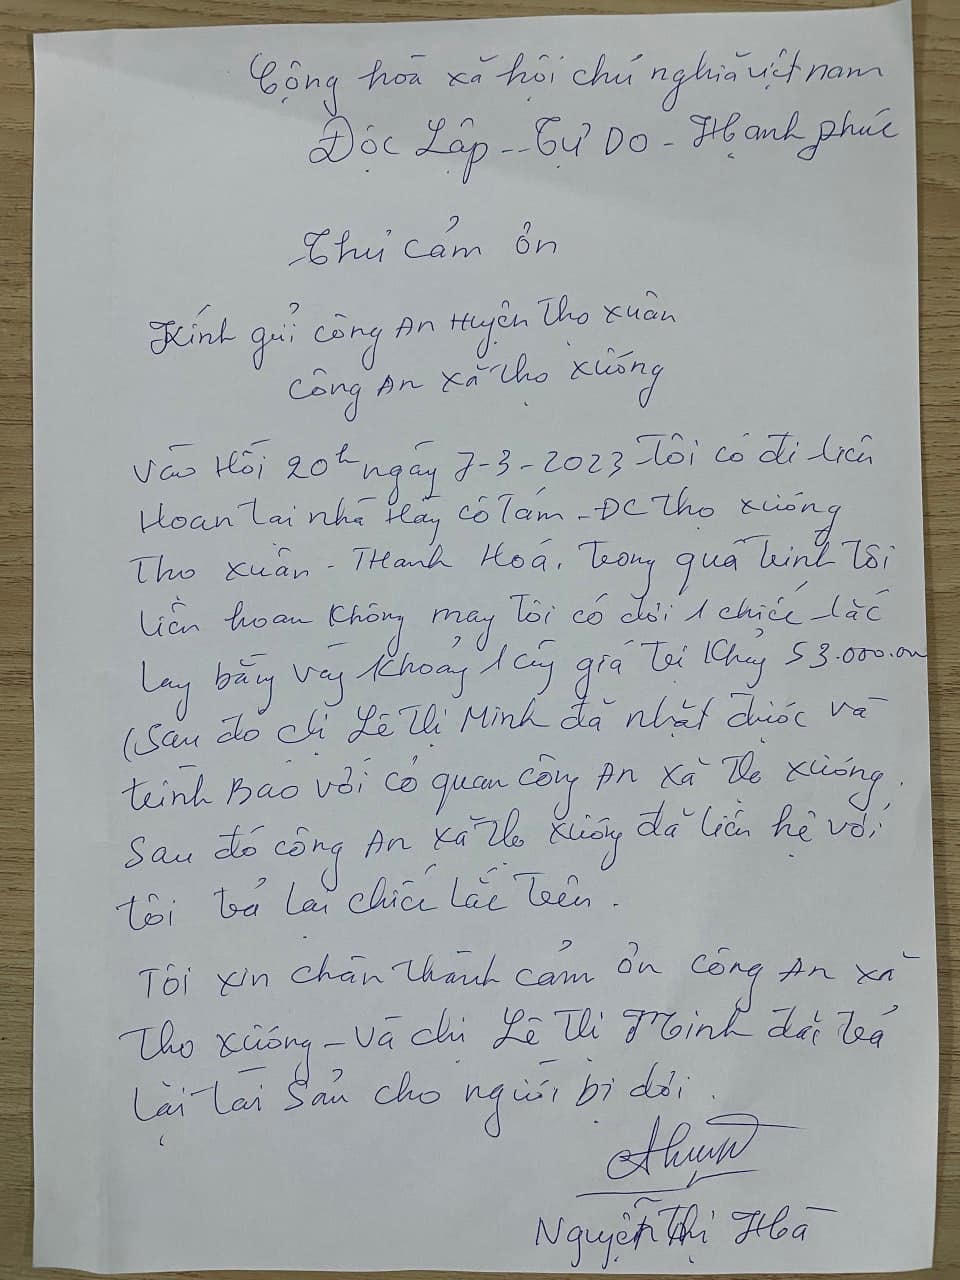 Cộng hoà xã hội chủ nghĩa việt nam
Độc Lập - Tự Do - Hạnh phúc
Thư cảm ơn
Kính gửi công An Huyện Thọ xuân
công An xã Thọ xương
Vào Hồi 20h ngày 7-3-2023 Tôi có đi liên
Hoan tại nhà Hàng cô Tám - ĐC Thọ xương
Thọ xuân - THanh Hoá, Trong quá trình Tôi
liên hoan không may Tôi có rơi 1 chiếc lắc
tay bằng vàng khoảng 1 cây giá trị khoảng 53.000.000
(Sau đó chị Lê Thị Minh đã nhặt được và
trình Báo với cơ quan công An xã Thọ xương.
Sau đó công An xã Thọ xương đã liên hệ với
tôi trả lại chiếc lắc trên.
Tôi xin chân thành cảm ơn công An xã
Thọ xương - và chị Lê Thị Minh đã trả
lại tài sản cho người bị rơi.
Nguyễn Thị Hà